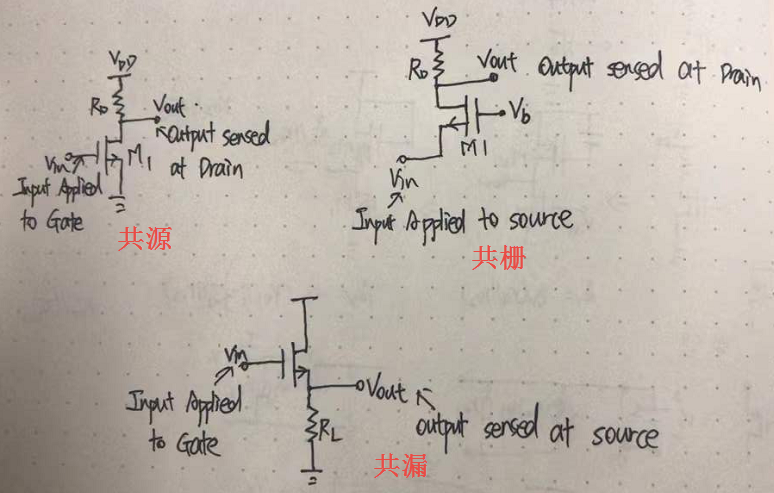 VDD
RD
Vout
Output sensed
at Drain
M1
Vin
Input Applied
to Gate
共源
VDD
RD
Vout
Output sensed at Drain
Vb
M1
Vin
Input Applied to source
共栅
Vin
Input Applied
to Gate
Vout
output sensed at source
RL
共漏